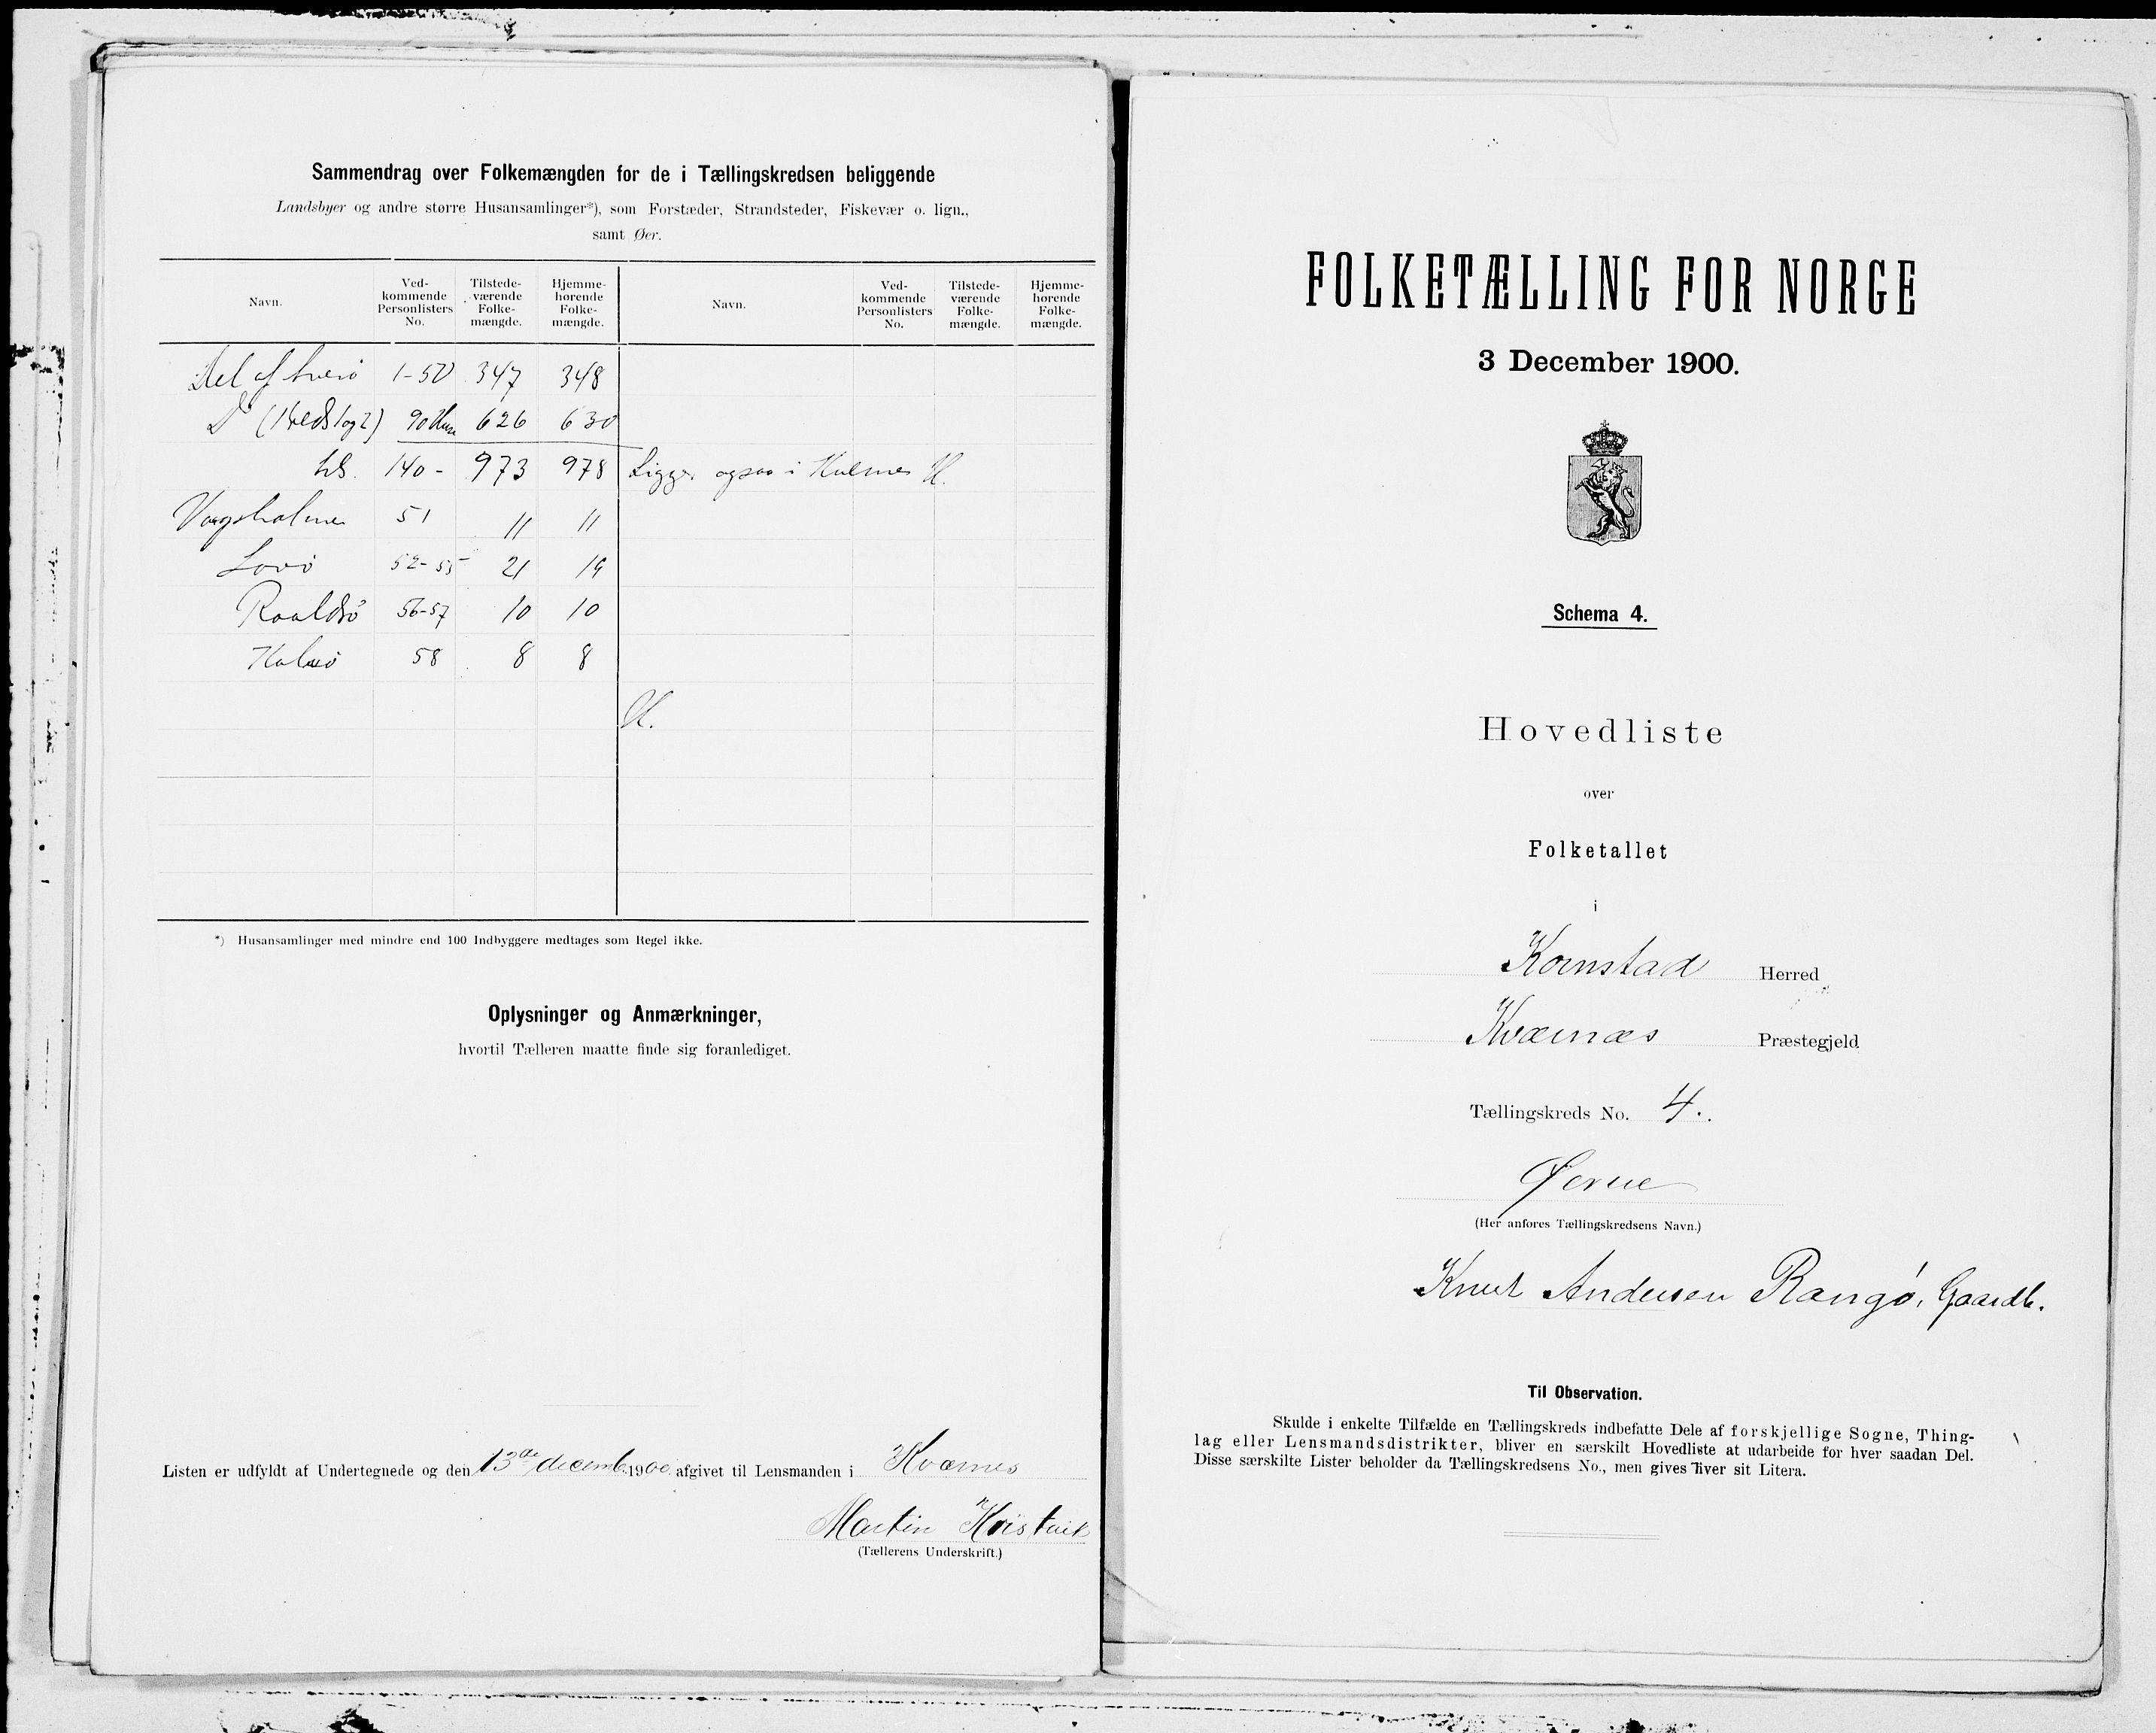 Sammendrag over Folkemængden for de i Tællingskredsen beliggende
Landsbyer og andre større Husansamlinger*), som Forstæder, Strandsteder, Fiskevær o. lign.,
samt Øer.
Navn. Ved-kommende Personlisters No. Tilstede-værende Folke-mængde. Hjemme-hørende Folke-mængde. Navn. Ved-kommende Personlisters No. Tilstede-værende Folke-mængde. Hjemme-hørende Folke-mængde.
Del af 1-50 347 348
Do 90 626 630
140- 973 978 Ligger ogsaa i
51 11 11
Lovø 52-55 21 19
Raaldsø 56-57 10 10
58 8 8
*) Husansamlinger med mindre end 100 Indbyggere medtages som Regel ikke.
Oplysninger og Anmærkninger,
hvortil Tælleren maatte finde sig foranlediget.
Listen er udfyldt af Undertegnede og den 13de decemb. 1900 afgivet til Lensmanden i Kværnes
Martin Kristvik
(Tællerens Underskrift.)
FOLKETÆLLING FOR NORGE
3 December 1900.
Schema 4.
Hovedliste
over
Folketallet
i
Kornstad Herred
Kværnæs Præstegjeld
Tællingskreds No. 4.
Øerne
(Her anføres Tællingskredsens Navn.)
Knut Andersen Rangø, Gaardb.
Til Observation.
Skulde i enkelte Tilfælde en Tællingskreds indbefatte Dele af forskjellige Sogne, Thing-
lag eller Lensmandsdistrikter, bliver en særskilt Hovedliste at udarbeide for hver saadan Del.
Disse særskilte Lister beholder da Tællingskredsens No., men gives hver sit Litera.